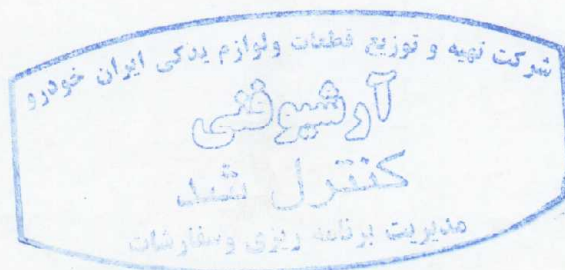 شرکت تهیه و توزیع قطعات ولوازم یدکی ایران خودرو
آرشیو فنی
کنترل شد
مدیریت برنامه ریزی وسفارشات